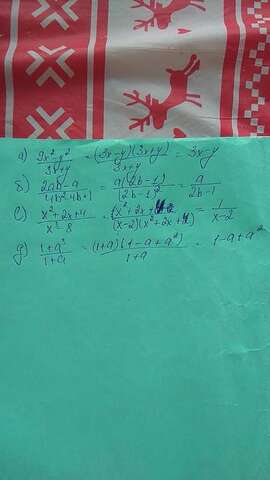 а) 9x²-y²/3x+y = (3x-y)(3x+y)/3x+y = 3x-y
б) 2ab-a/4b²-4b+1 = a(2b-1)/(2b-1)² = a/2b-1
с) x²+2x+4/x³-8 = x²+2x+4/(x-2)(x²+2x+4) = 1/x-2
д) 1+a³/1+a = (1+a)(1-a+a²)/1+a = 1-a+a²